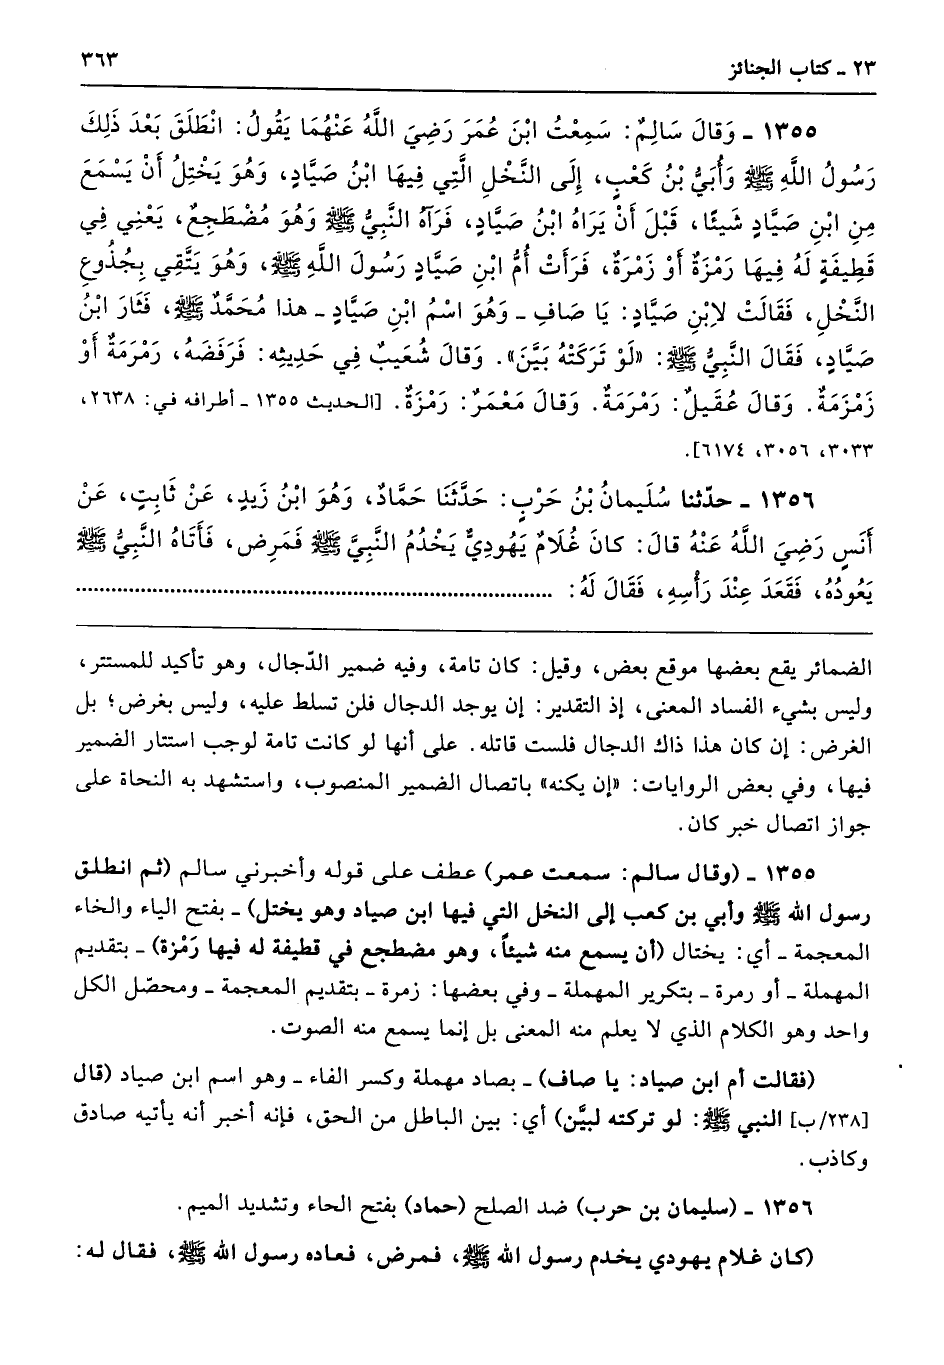 ٢٣ ـ كتاب الجنائز
٣٦٣
١٣٥٥ ـ وَقَالَ سَالِمٌ: سَمِعْتُ ابْنَ عُمَرَ رَضِيَ اللَّهُ عَنْهُمَا يَقُولُ: انْطَلَقَ بَعْدَ ذَلِكَ
رَسُولُ اللَّهِ ﷺ وَأُبَيُّ بْنُ كَعْبٍ، إِلَى النَّخْلِ الَّتِي فِيهَا ابْنُ صَيَّادٍ، وَهُوَ يَخْتِلُ أَنْ يَسْمَعَ
مِنِ ابْنِ صَيَّادٍ شَيئًا، قَبْلَ أَنْ يَرَاهُ ابْنُ صَيَّادٍ، فَرَآهُ النَّبِيُّ ﷺ وَهُوَ مُضْطَجِعٌ، يَعْنِي فِي
قَطِيفَةٍ لَهُ فِيهَا رَمْزَةٌ أَوْ زَمْرَةٌ، فَرَأَتْ أُمُّ ابْنِ صَيَّادٍ رَسُولَ اللَّهِ ﷺ، وَهُوَ يَتَّقِي بِجُذُوعِ
النَّخْلِ، فَقَالَتْ لِابْنِ صَيَّادٍ: يَا صَافِ ـ وَهُوَ اسْمُ ابْنِ صَيَّادٍ ـ هذا مُحَمَّدٌ ﷺ، فَثَارَ ابْنُ
صَيَّادٍ، فَقَالَ النَّبِيُّ ﷺ: «لَوْ تَرَكَتْهُ بَيَّنَ». وَقَالَ شُعَيبٌ فِي حَدِيثِهِ: فَرَفَضَهُ، رَمْرَمَةٌ أَوْ
زَمْزَمَةٌ. وَقَالَ عُقَيلٌ: رَمْرَمَةٌ. وَقَالَ مَعْمَرٌ: رَمْزَةٌ. [الحديث ١٣٥٥ ـ أطرافه في: ٢٦٣٨،
٣٠٣٣، ٣٠٥٦، ٦١٧٤].
١٣٥٦ ـ حدّثنا سُلَيمانُ بْنُ حَرْبٍ: حَدَّثَنَا حَمَّادٌ، وَهُوَ ابْنُ زَيدٍ، عَنْ ثَابِتٍ، عَنْ
أَنَسٍ رَضِيَ اللَّهُ عَنْهُ قالَ: كانَ غُلَامٌ يَهُودِيٌّ يَخْدُمُ النَّبِيَّ ﷺ فَمَرِض، فَأَتَاهُ النَّبِيُّ ﷺ
يَعُودُهُ، فَقَعَدَ عِنْدَ رَأْسِهِ، فَقَالَ لَهُ: ................................................................................
الضمائر يقع بعضها موقع بعض، وقيل: كان تامة، وفيه ضمير الدّجال، وهو تأكيد للمستتر،
وليس بشيء الفساد المعنى، إذ التقدير: إن يوجد الدجال فلن تسلط عليه، وليس بغرض؛ بل
الغرض: إن كان هذا ذاك الدجال فلست قاتله. على أنها لو كانت تامة لوجب استتار الضمير
فيها، وفي بعض الروايات: «إن يكنه» باتصال الضمير المنصوب، واستشهد به النحاة على
جواز اتصال خبر كان.
١٣٥٥ ـ (وقال سالم: سمعت عمر) عطف على قوله وأخبرني سالم (ثم انطلق
رسول الله ﷺ وأبي بن كعب إلى النخل التي فيها ابن صياد وهو يختل) ـ بفتح الياء والخاء
المعجمة ـ أي: يختال (أن يسمع منه شيئاً، وهو مضطجع في قطيفة له فيها رَمْزة) ـ بتقديم
المهملة ـ أو رمرة ـ بتكرير المهملة ـ وفي بعضها: زمرة ـ بتقديم المعجمة ـ ومحصّل الكل
واحد وهو الكلام الذي لا يعلم منه المعنى بل إنما يسمع منه الصوت.
(فقالت أم ابن صياد: يا صاف) ـ بصاد مهملة وكسر الفاء ـ وهو اسم ابن صياد (قال
[٢٣٨/ب] النبي ﷺ: لو تركته لبيَّن) أي: بين الباطل من الحق، فإنه أخبر أنه يأتيه صادق
وكاذب.
١٣٥٦ ـ (سليمان بن حرب) ضد الصلح (حماد) بفتح الحاء وتشديد الميم.
(كان غلام يهودي يخدم رسول الله ﷺ، فمرض، فعاده رسول الله ﷺ، فقال له: